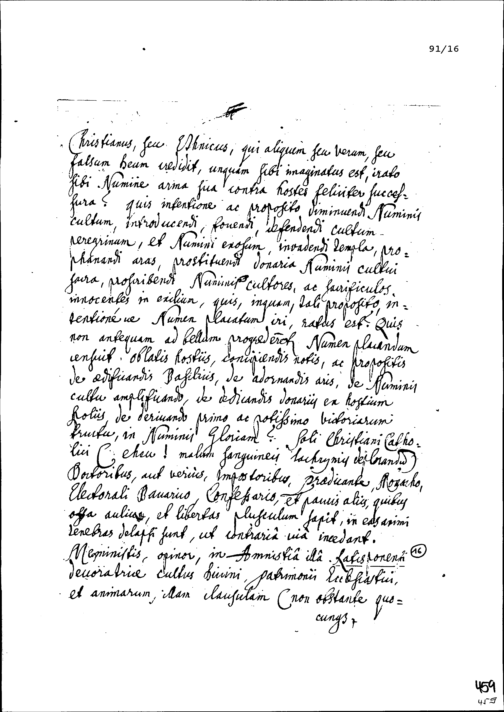 91/16
Christianus, seu Ethnicus, qui aliquem seu verum, seu
falsum Deum credidit, unquam sibi imaginatus est, irato
sibi Numine arma sua contra hostes feliciter succes-
sura? quis intentione ac proposito diminuendi Numinis
cultum, introducendi, fovendi, defendendi cultum
peregrinum, et Numini exosum, invadendi templa, pro=
phanandi aras, prostituendi donaria Numinis cultui
sacra, proscribendi Numinis cultores, ac sacrificulos
innocentes in exilium, quis, inquam, tali proposito, in=
tentione ve Numen placatum iri, ratus est? Quis
non antequam ad bellum progrederetur Numen placandum
censuit oblatis hostiis, concipiendis votis, ac propositis
de ædificandis Basilicis, de adornandis aris, de Numinis
cultu amplificando, de dedicandis donariis ex hostium
spoliis, de derivando primo ac potissimo victoriarum
fructu, in Numinis Gloriam? Soli Christiani Catho=
lici (: eheu! malum sanguineis lachrymis deplorandum)
Doctoribus, aut verius, Impostoribus, prædicante Monacho,
Electorali Bavarico Confessario, et paucis aliis, quibus
offa aulica, et libertas plusculum sapit, in eas animi
tenebras delapsi sunt, ut contraria via incedant.
Meministis, opinor, in Amnistiâ illâ Ratisponensi (16)
devoratrice cultus Divini, patrimonii Ecclesiastici,
et animarum, illam clausulam (non obstante quo=
cunqs
459
459